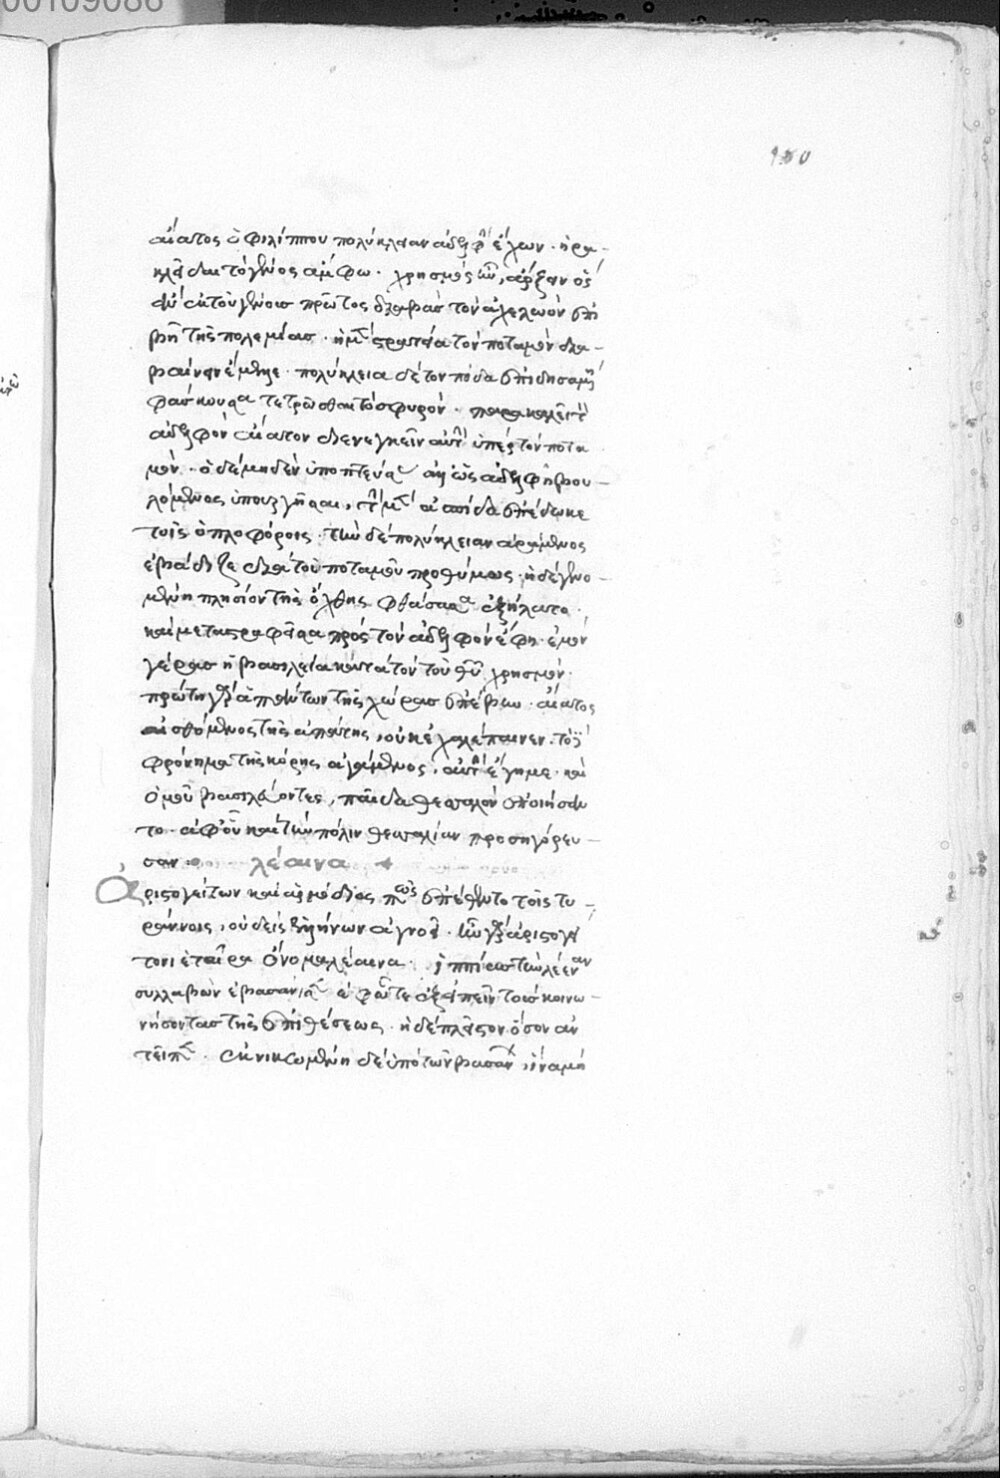 00109086
150
αἴατος ὁ φιλίππου πολύκλειαν ἀδελφὴν ἔχων · ἡρα-
κλεῖδαι τὸ γένος ἄμφω · χρησμὸς ἦν, ἄρξειν ὃς
ἂν ἐκ τοῦ γένους πρῶτος διαβὰς τὸν ἀχελῶον ἐπι
βῇ τῆς πολεμίας · ἡ μὲν στρατεία τὸν ποταμὸν δια-
βαίνειν ἔμελλε · πολύκλεια δὲ τὸν πόδα ἐπιδησαμένη
φάσκουσα τετρῶσθαι τὸ σφυρὸν · παρακαλεῖ τὸν
ἀδελφὸν αἴατον διενεγκεῖν αὐτὴν ὑπὲρ τὸν ποτα
μόν · ὁ δὲ μηδὲν ὑποπτεύσας ἀλλ' ὡς ἀδελφῇ βου-
λόμενος ὑπουργῆσαι, τὴν μὲν ἀσπίδα ἐπέδωκε
τοῖς ὁπλοφόροις · τὴν δὲ πολύκλειαν ἀράμενος
ἐβάδιζε διὰ τοῦ ποταμοῦ προθύμως · ἡ δὲ γενο-
μένη πλησίον τῆς ὄχθης φθάσασα ἐξήλατο ·
καὶ μεταστραφεῖσα πρὸς τὸν ἀδελφὸν ἔφη · ἐμὸν
γέρας ἡ βασιλεία κατὰ τὸν τοῦ θεοῦ χρησμόν ·
πρώτη γὰρ ἁπάντων τῆς χώρας ἐπέβην · αἴατος
αἰσθόμενος τῆς ἀπάτης, οὐκ ἐχαλέπαινεν · τὸ δὲ
φρόνημα τῆς κόρης ἀγάμενος, αὐτὴν ἔγημε · καὶ
ὁμοῦ βασιλεύοντες, παῖδα θεσσαλὸν ἐποιήσαν
το · ἀφ' οὗ καὶ τὴν πόλιν θεσσαλίαν προσηγόρευ-
σαν · λέαινα +
Ἀριστογείτων καὶ ἁρμόδιος πῶς ἐπέθεντο τοῖς τυ-
ράννοις, οὐδεὶς ἑλλήνων ἀγνοεῖ · ἦν γὰρ ἀριστογεί
τονι ἑταίρα ὄνομα λέαινα · ἱππίας τὴν λέεναν
συλλαβὼν ἐβασάνισεν ἐφ' ᾧτε ἐξειπεῖν τοὺς κοινω-
νήσοντας τῆς ἐπιθέσεως · ἡ δὲ πλεῖστον ὅσον ἀν
τεῖπεν · ἐκνικωμένη δὲ ὑπὸ τῶν βασάνων, ἵνα μὴ